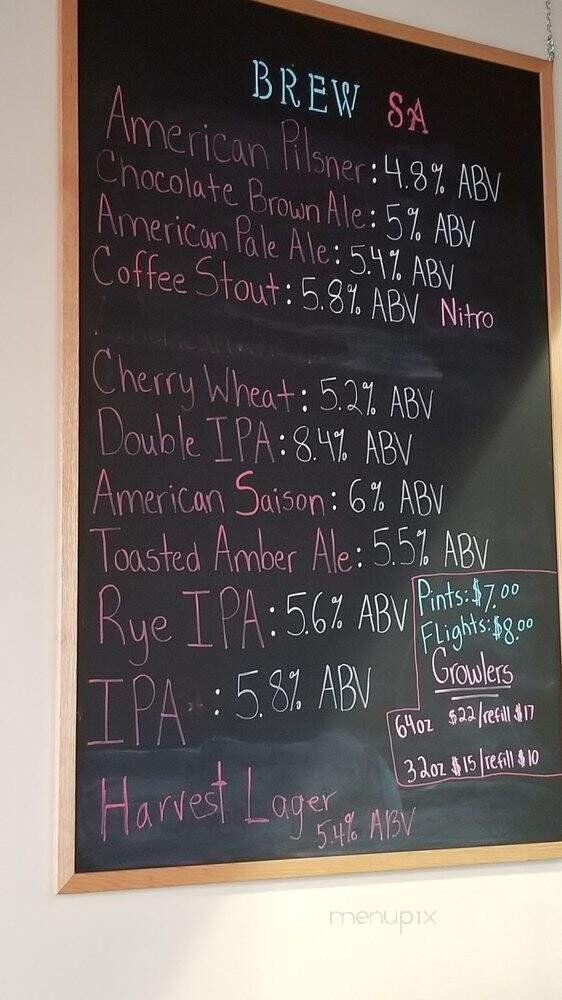 BREW SA
American Pilsner: 4.8% ABV
Chocolate Brown Ale: 5% ABV
American Pale Ale: 5.4% ABV
Coffee Stout: 5.8% ABV Nitro
Cherry Wheat: 5.2% ABV
Double IPA: 8.4% ABV
American Saison: 6% ABV
Toasted Amber Ale: 5.5% ABV
Rye IPA: 5.6% ABV
IPA : 5.8% ABV
Harvest Lager
5.4% ABV
Pints: $7.00
Flights: $8.00
Growlers
64oz $22/refill $17
32oz $15/refill $10
menupix